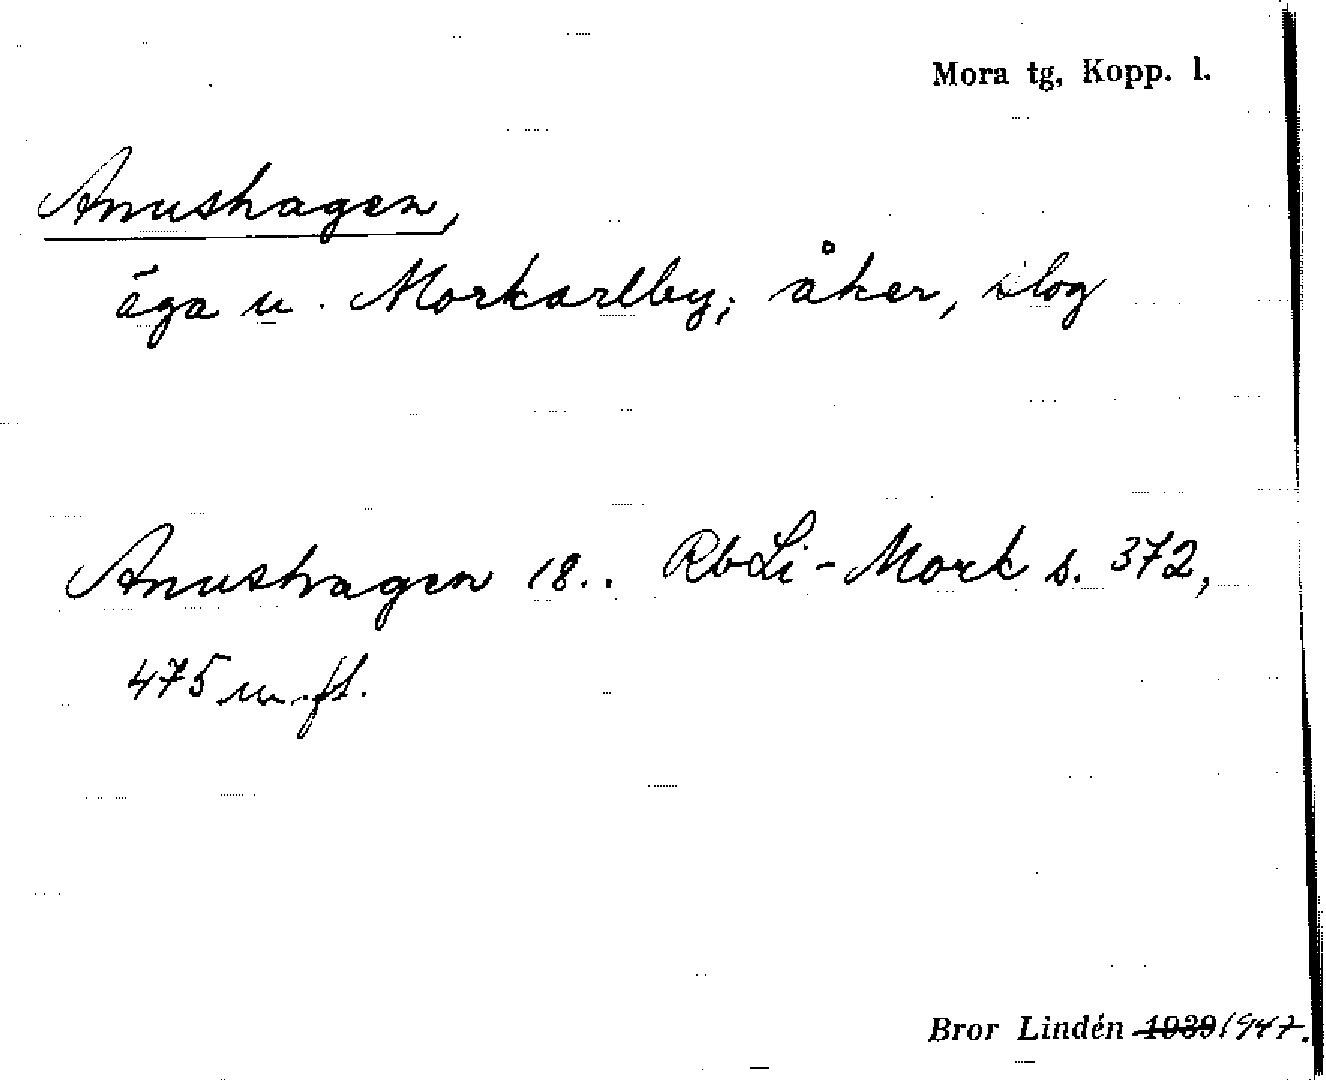 Mora tg, Kopp. l.
Anushagen,
äga u. Morkarlby; åker, slog
Anushagen 18.. RbLi-Mork s. 372,
475 m. fl.
Bror Lindén 1939 1947.